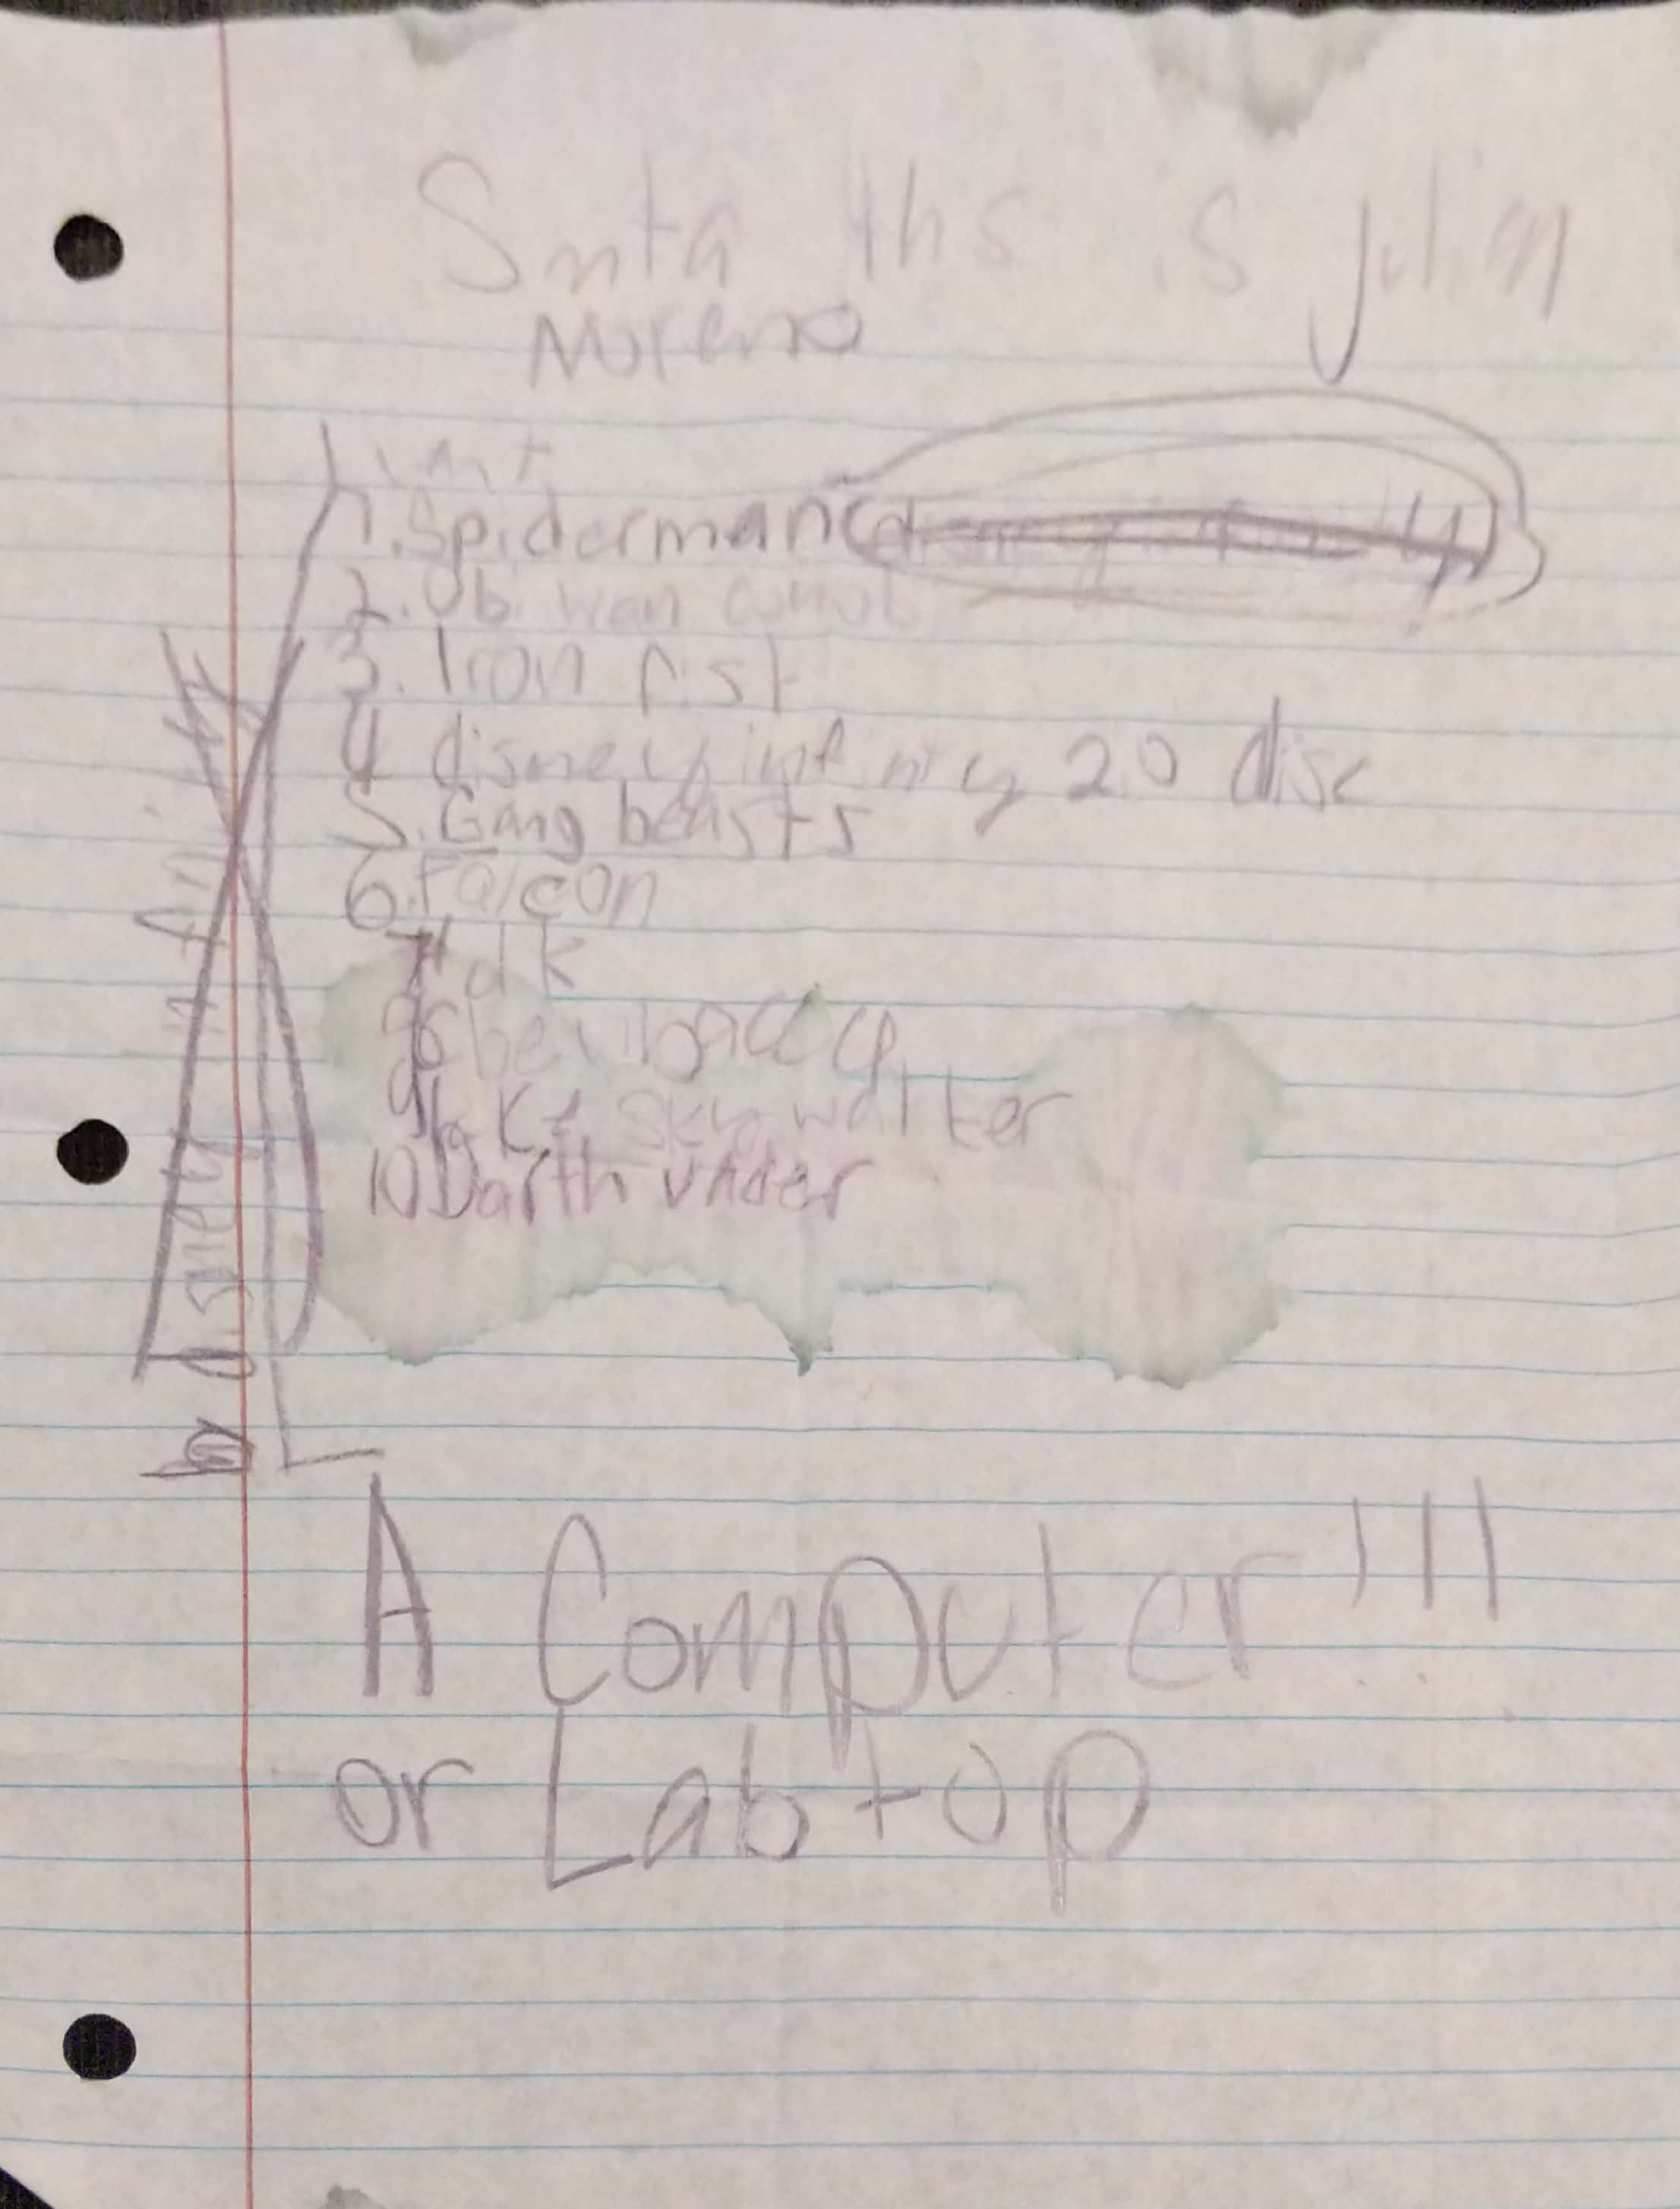 Snta ths is Julin
Moreno
I wnt
1. Spiderman
2. Obi wan conob
3. Iron fist
4 disney infinity 2.0 disc
5. Gang beasts
6. Falcon
7 dk
8
9 skywalker
10 Darth vader
disney infinity
A Computer!!!
or Labtop